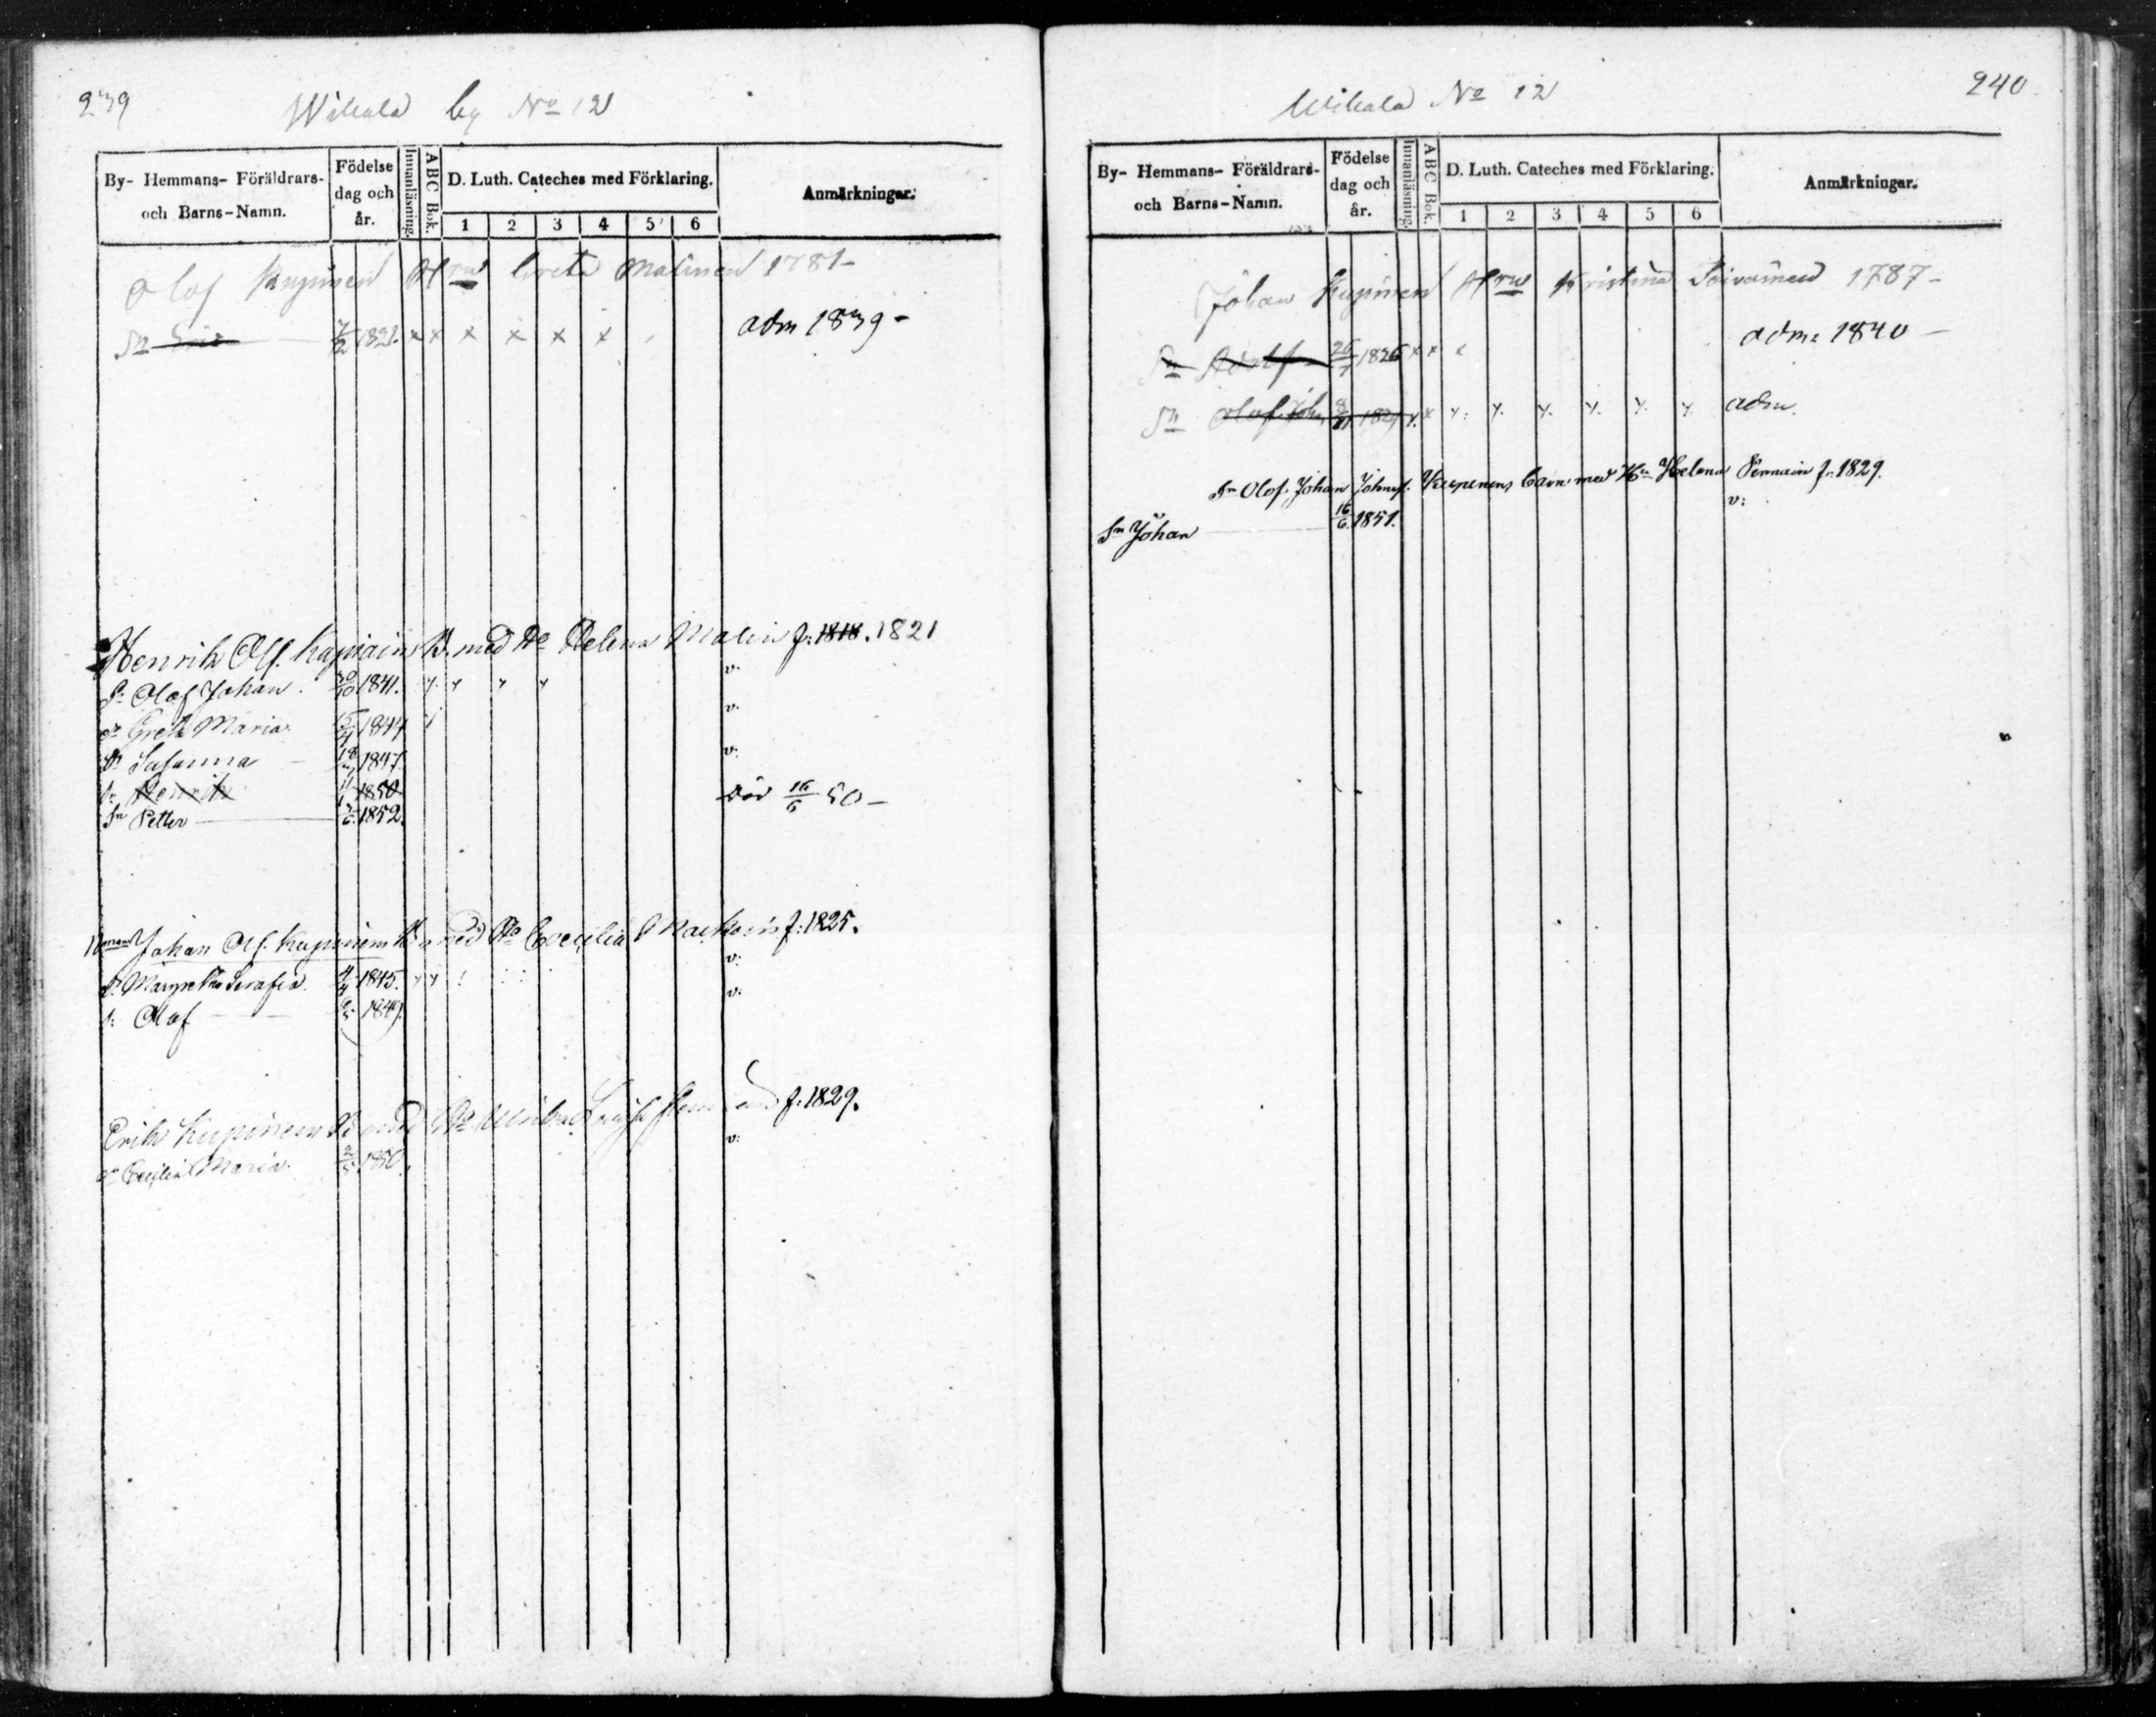 239
Wihala by No 12
By- Hemmans- Föräldrars- och Barns-Namn.
Födelse dag och år.
Innanläsning.
ABC Bok.
D. Luth. Cateches med Förklaring.
1 2 3 4 5 6
Anmärkningar.
Olof Kupinen Hru Greta Malinen 1781-
Sn Eric 1821. x x x x x x adm 1839-
Henrik Olf. Kupiains B. med Ho Helena Malin f. 1818. 1821
S: Olof Johan. 30/10 1841. v.
dr Greta Maria. 15/4 1844 v.
dr Susanna 1847. v:
S: Henrik 11/1 1850 död 16/6 50-
Sn Petter 1852.
Johan Olf. Kupinens B. med Ho Cecilia f: 1825.
dr Margretha Serafia. 4/4 1845. v:
S: Olof 1849. v:
Erik Kupinens B med Ho f. 1829.
dr Cecilia Maria. 2/5 1850. v:
240.
Wihala No 12
By- Hemmans- Föräldrars- och Barns-Namn.
Födelse dag och år.
Innanläsning.
ABC Bok.
D. Luth. Cateches med Förklaring.
1 2 3 4 5 6
Anmärkningar.
Johan Kupinen Hru Kristina Toivainen 1787-
Sn Adolf 26/1 1826 x x x adm: 1840-
Sn Olof Joh. adm.
Sn Olof Johan Johnsf. Kupinens barn med Ho Helena f. 1829.
Sn Johan 16/6. 1851. v: